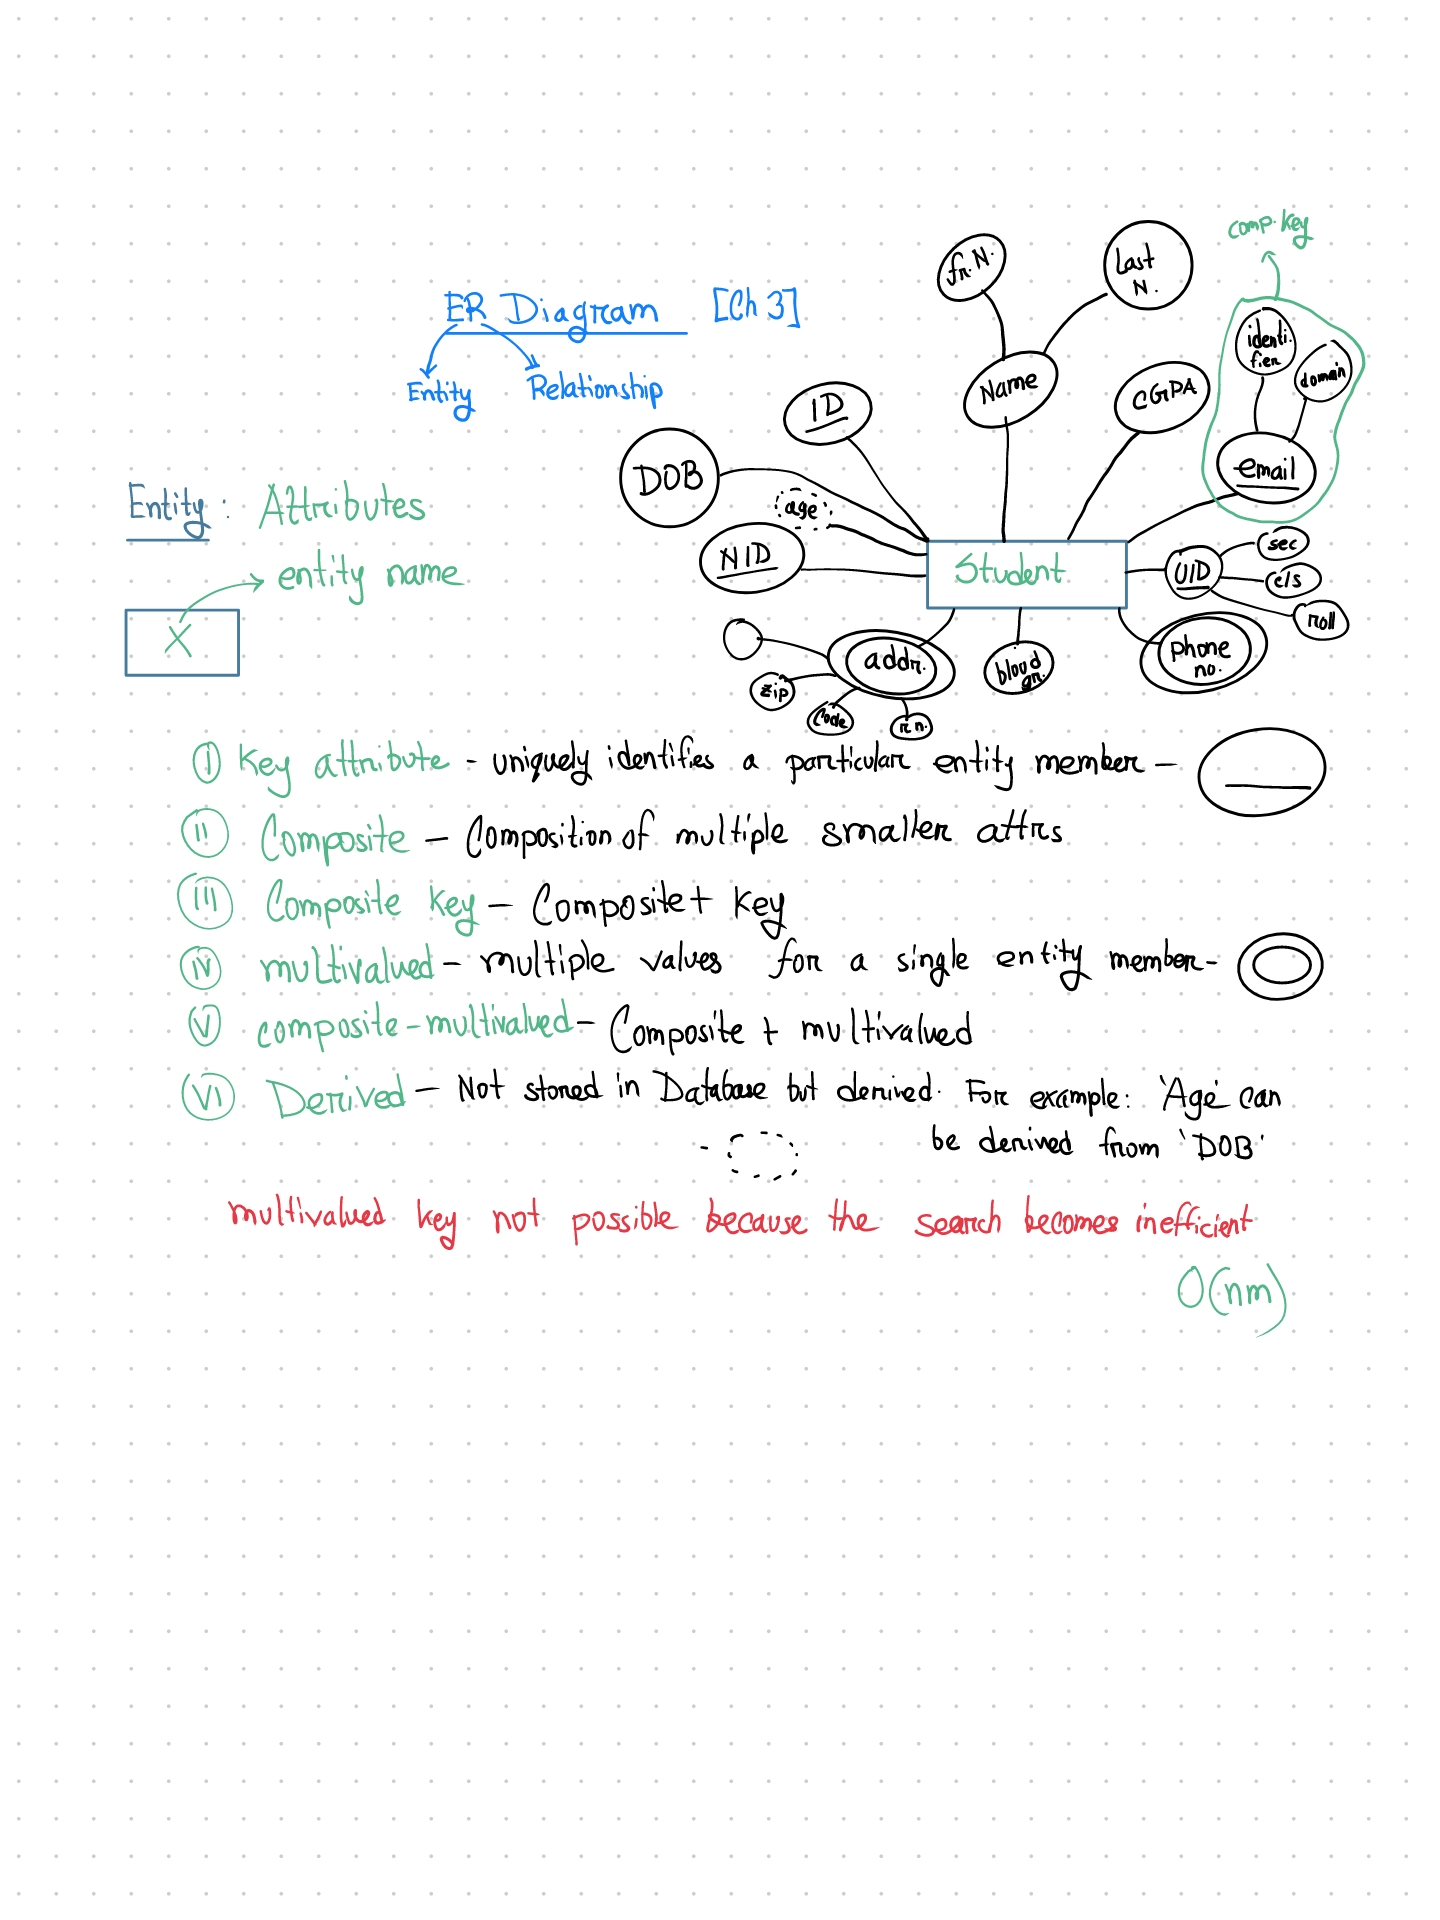 comp. key
fr. N.
Last
N.
ER Diagram [Ch 3]
identi.
fier
domain
Entity
Relationship
ID
Name
CGPA
DOB
email
Entity : Attributes
age
NID
Student
UID
sec
c/s
roll
entity name
X
addr.
blood
gr.
phone
no.
zip
Code
r.n.
i Key attribute - uniquely identifies a particular entity member -
ii Composite - Composition of multiple smaller attrs
iii Composite key - Composite + key
iv multivalued - multiple values for a single entity member -
v composite-multivalued - Composite + multivalued
vi Derived - Not stored in Database but derived. For example: 'Age' can
be derived from 'DOB'
multivalued key not possible because the search becomes inefficient
O(nm)